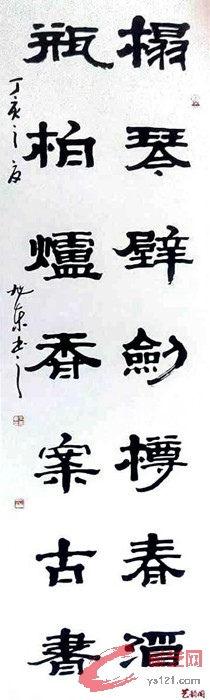 榻琴壁劍樽春酒
瓶柏爐香案古書
丁亥之夏
旭东书之
ys121.com